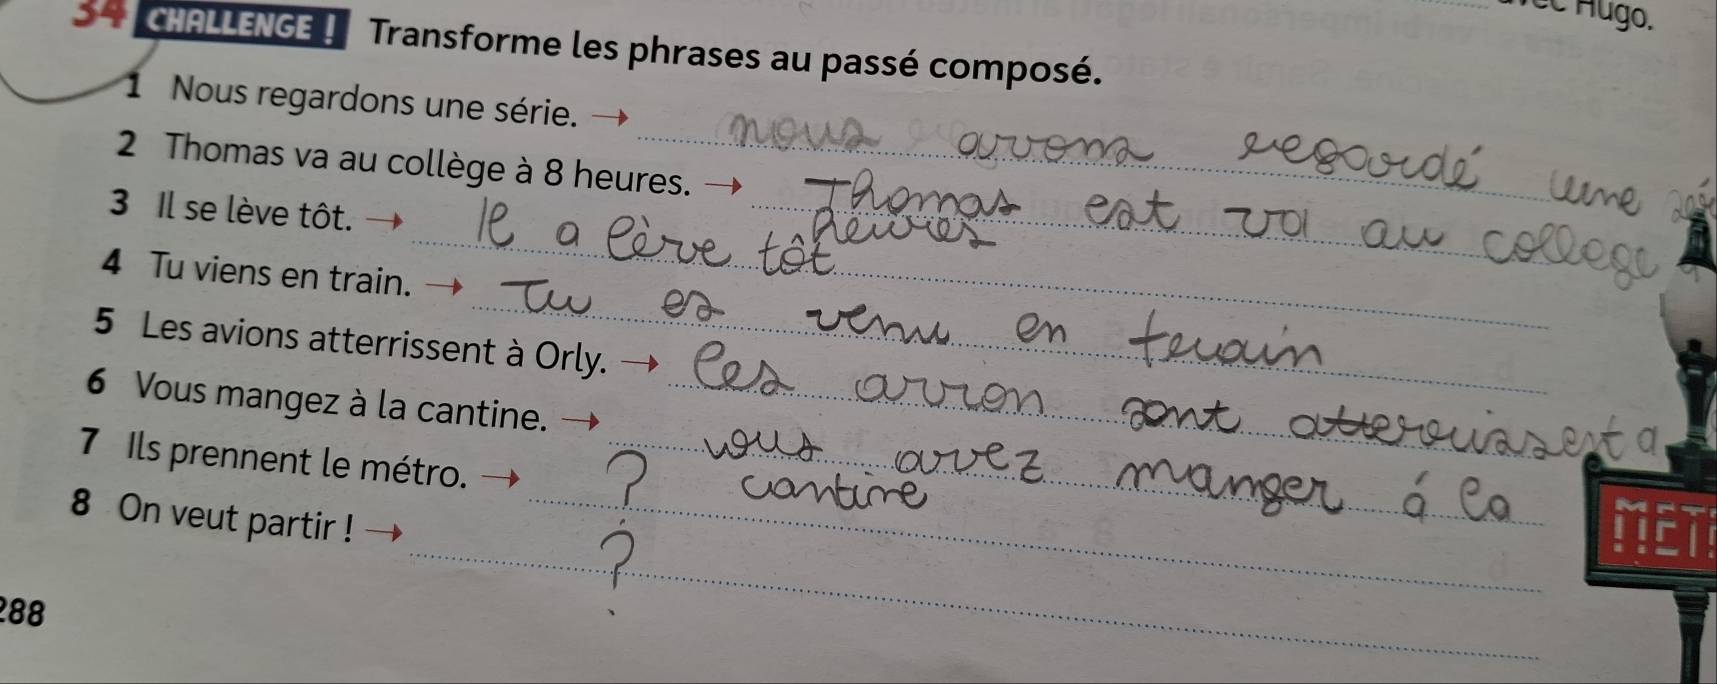 Hugo.
34 CHALLENGE ! Transforme les phrases au passé composé.
1 Nous regardons une série. → nous avons regardé une
2 Thomas va au collège à 8 heures. → Thomas est va au college
heures
3 Il se lève tôt. → le a lève tôt
4 Tu viens en train. → Tu es venu en train
5 Les avions atterrissent à Orly. → les avion sont atterouissent a
6 Vous mangez à la cantine. → vous avez manger á la
cantine
7 Ils prennent le métro. → ?
8 On veut partir ! → ?
288